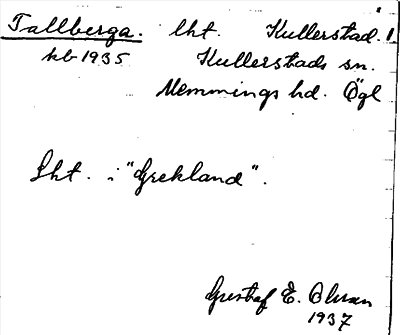 Tallberga. lht. Kullerstad. 1
kb 1935 Kullerstads sn.
Memmings hd. Ögl
Lht. i "Grekland".
Gustaf E. Olsson
1937